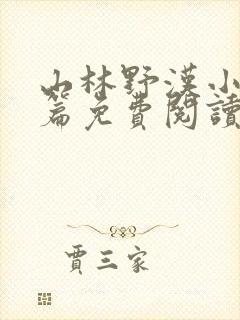 山林野漢小
篇免費閱讀
賈三家